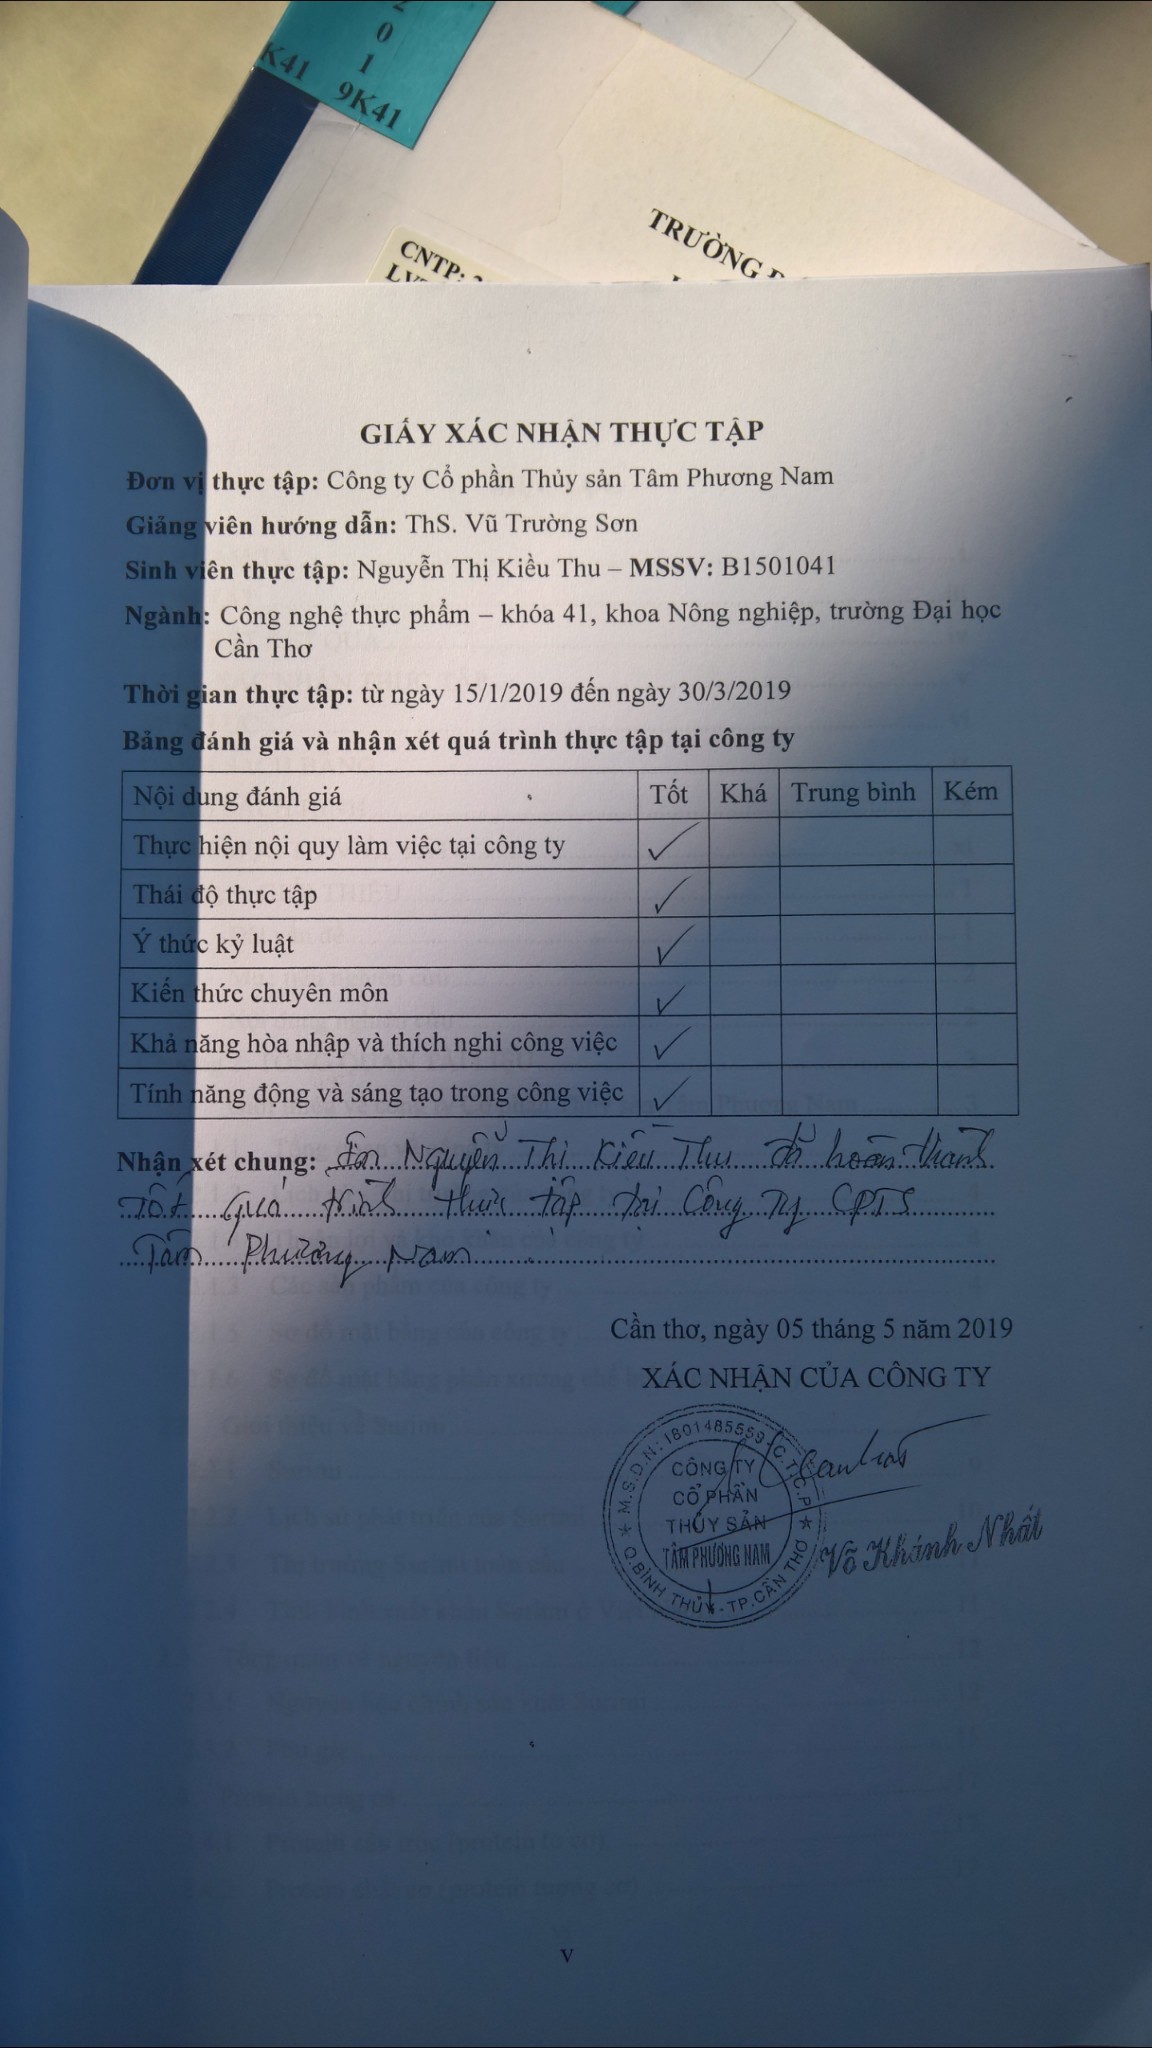 2
0
1
K41 9K41
TRƯỜNG
CNTP:
GIẤY XÁC NHẬN THỰC TẬP
Đơn vị thực tập: Công ty Cổ phần Thủy sản Tâm Phương Nam
Giảng viên hướng dẫn: ThS. Vũ Trường Sơn
Sinh viên thực tập: Nguyễn Thị Kiều Thu – MSSV: B1501041
Ngành: Công nghệ thực phẩm – khóa 41, khoa Nông nghiệp, trường Đại học
Cần Thơ
Thời gian thực tập: từ ngày 15/1/2019 đến ngày 30/3/2019
Bảng đánh giá và nhận xét quá trình thực tập tại công ty
Nội dung đánh giá Tốt Khá Trung bình Kém
Thực hiện nội quy làm việc tại công ty ✓
Thái độ thực tập ✓
Ý thức kỷ luật ✓
Kiến thức chuyên môn ✓
Khả năng hòa nhập và thích nghi công việc ✓
Tính năng động và sáng tạo trong công việc ✓
Nhận xét chung: Em Nguyễn Thị Kiều Thu đã hoàn thành
Tốt quá trình thực tập tại Công Ty CPTS
Tâm Phương Nam
Cần thơ, ngày 05 tháng 5 năm 2019
XÁC NHẬN CỦA CÔNG TY
M.S.D.N: 1801485559-C.T.C.P
CÔNG TY
CỔ PHẦN
THỦY SẢN
TÂM PHƯƠNG NAM
Q.BÌNH THỦY-TP.CẦN THƠ
Võ Khánh Nhất
v